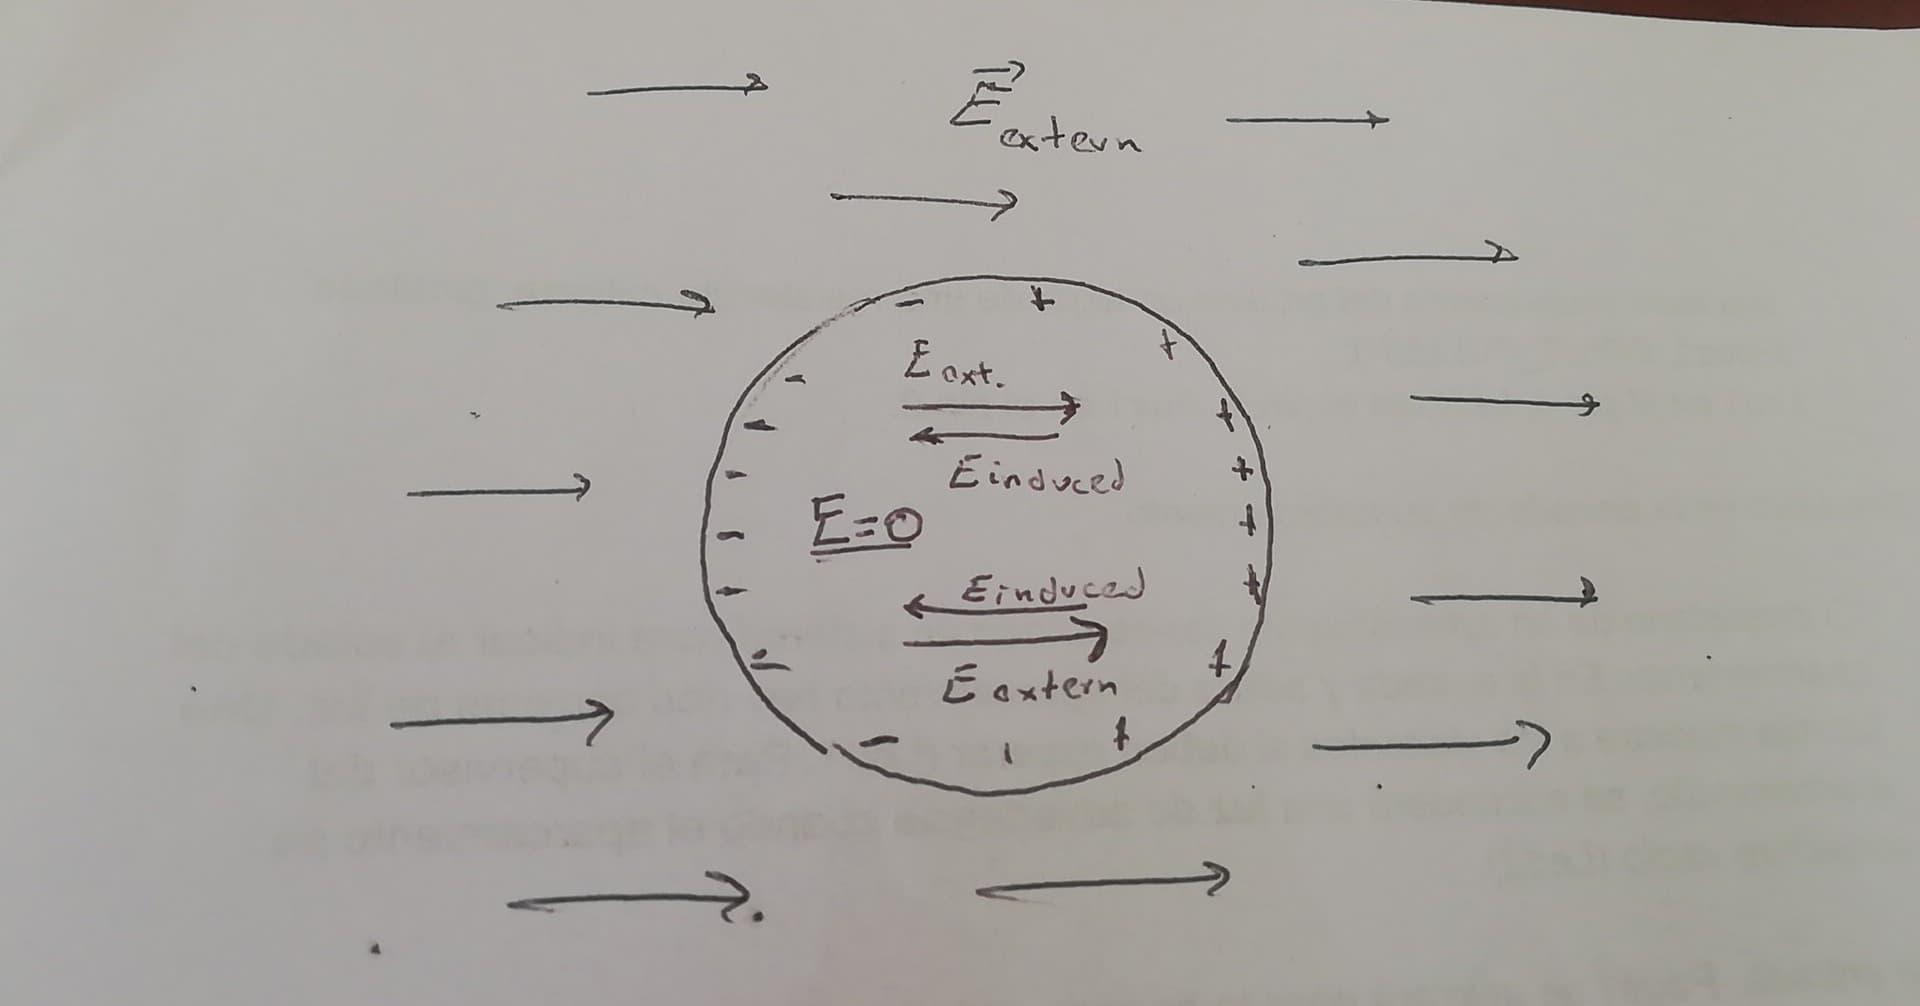 E extern
E ext.
E induced
E=0
E induced
E extern